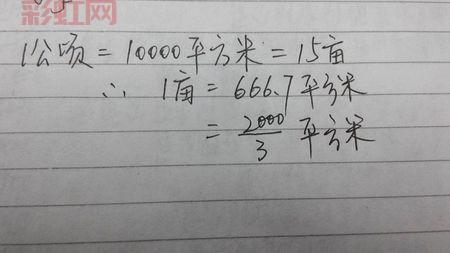 彩虹网
1公顷 = 10000平方米 = 15亩
∴ 1亩 = 666.7平方米
= 2000/3 平方米